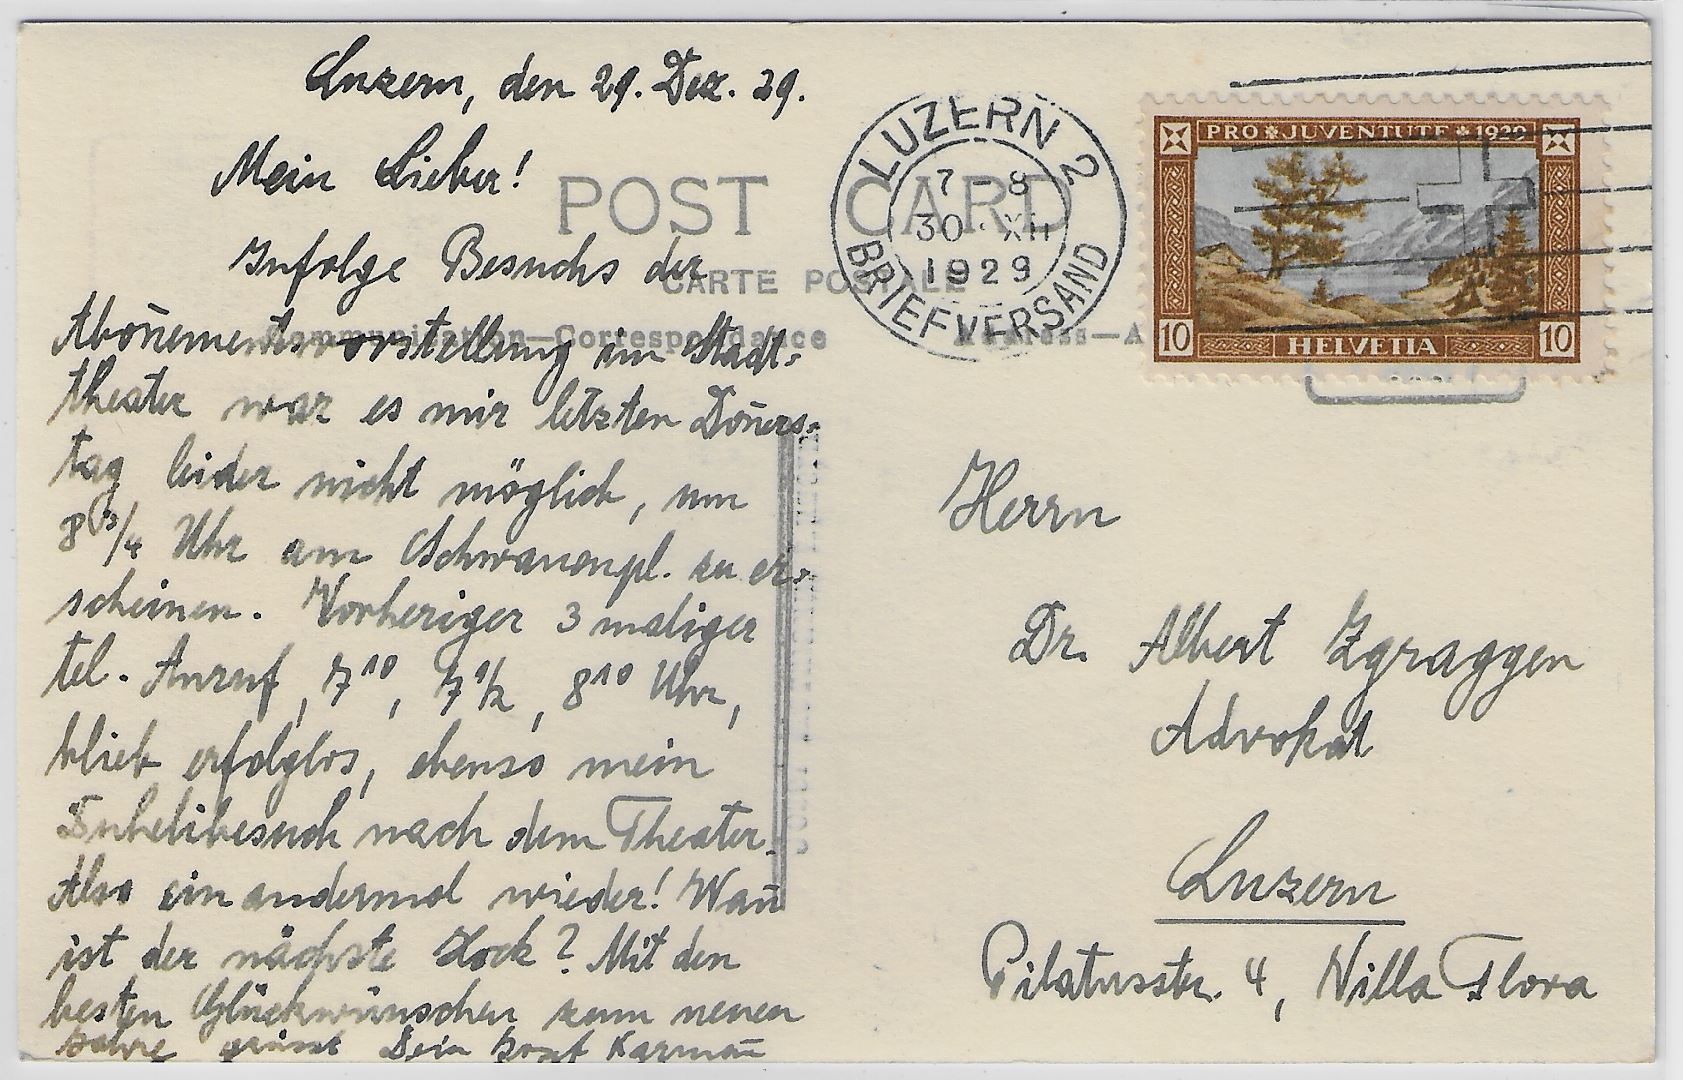 Luzern, den 29. Dez. 29.
Mein Lieber!
Infolge Besuchs der
Abon̄ementsvorstellung im Stadt-
theater war es mir letzten Don̄ers-
tag leider nicht möglich, um
8 3/4 Uhr am Schwanenpl. zu er-
scheinen. Vorheriger 3 maliger
tel. Anruf, 7¹⁰, 7 1/2, 8¹⁰ Uhr,
blieb erfolglos, ebenso mein
nach dem Theater.
Also ein andermal wieder! Wan̄
ist der nächste Hock? Mit den
besten Glückwünschen zum neuen
Jahre grüsst Dein Josef
POST CARD
CARTE POSTALE
Communication—Correspondance
LUZERN 2
7 - 8
30 · XII
1929
BRIEFVERSAND
PRO JUVENTUTE 1929
10 HELVETIA 10
Herrn
Dr. Albert Zgraggen
Advokat
Luzern
Pilatusstr. 4, Villa Flora